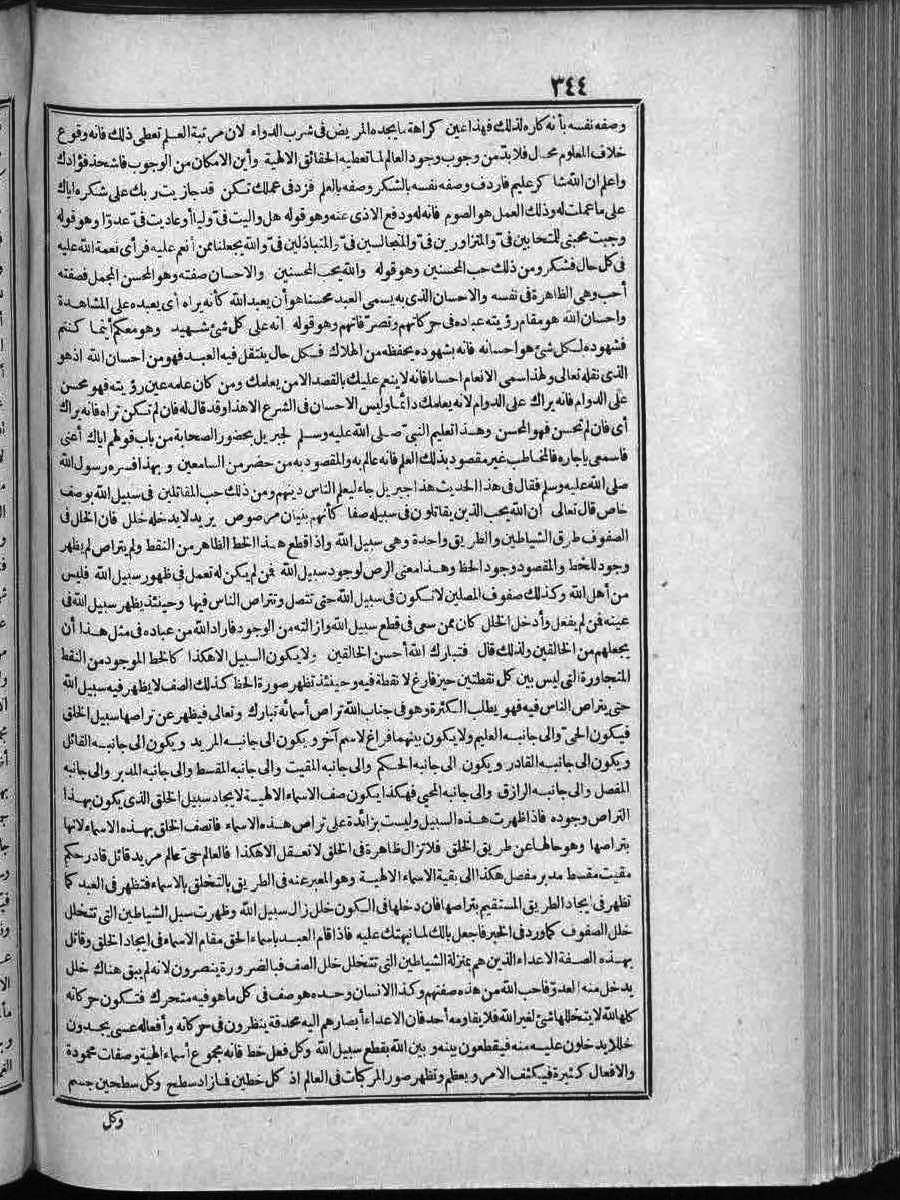 ٣٤٤
وصفه نفسه بأنه كاره لذلك فهذا عين كراهة ما يجده المريض فى شرب الدواء لان مرتبة العلم تعطى ذلك فانه وقوع
خلاف المعلوم محال فلابد من وجوب وجود العالم لما تعطيه الحقائق الالهية وأين الامكان من الوجوب فاشحذ فؤادك
واعلم ان الله شاكر عليم فاردف وصفه نفسه بالشكر وصفه بالعلم فزد فى عملك تكن قد جازيت ربك على شكره اياك
على ما عملت له وذلك العمل هو الصوم فانه له ودفع الاذى عنه وهو قوله هل واليت فىّ وليا أو عاديت فىّ عدوّا وهو قوله
وجبت محبتى للمتحابين فىّ والمتزاورين فىّ والمتجالسين فىّ والمتباذلين فىّ والله يجعلنا ممن أنعم عليه فرأى نعمة الله عليه
فى كل حال فشكر ومن ذلك حب المحسنين وهو قوله والله يحب المحسنين والاحسان صفته وهو المحسن المجمل فصفته
أحب وهى الظاهرة فى نفسه والاحسان الذى به يسمى العبد محسنا هو أن يعبد الله كأنه يراه أى يعبده على المشاهدة
واحسان الله هو مقام رؤيته عباده فى حركاتهم وتصرّفاتهم وهو قوله انه على كل شئ شهيد وهو معكم أينما كنتم
فشهوده لكل شئ هو احسانه فانه بشهوده يحفظه من الهلاك فكل حال ينتقل فيه العبد فهو من احسان الله اذ هو
الذى نقله تعالى ولهذا سمى الانعام احسانا فانه لا ينعم عليك بالقصد الا من يعلمك ومن كان علمه عين رؤيته فهو محسن
على الدوام فانه يراك على الدوام لانه يعلمك دائما وليس الاحسان فى الشرع الا هذا وقد قال له فان لم تكن تراه فانه يراك
أى فان لم تحسن فهو المحسن وهذا تعليم النبىّ صلى الله عليه وسلم لجبريل بحضور الصحابة من باب قولهم اياك أعنى
فاسمعى يا جاره فالمخاطب غير مقصود بذلك العلم فانه عالم به والمقصود به من حضر من السامعين و بهذا فسره رسول الله
صلى الله عليه وسلم فقال فى هذا الحديث هذا جبريل جاء ليعلم الناس دينهم ومن ذلك حب المقاتلين فى سبيل الله بوصف
خاص قال تعالى ان الله يحب الذين يقاتلون فى سبيله صفا كأنهم بنيان مرصوص يريد لا يدخله خلل فان الخلل فى
الصفوف طرق الشياطين والطريق واحدة وهى سبيل الله واذا قطع هذا الخط الظاهر من النقط ولم يتراص لم يظهر
وجود للخط والمقصود وجود الخط وهذا معنى الرص لوجود سبيل الله فمن لم يكن له تعمل فى ظهور سبيل الله فليس
من أهل الله وكذلك صفوف المصلين لا تكون فى سبيل الله حتى تتصل وتتراص الناس فيها وحينئذ يظهر سبيل الله فى
عينه فمن لم يفعل وأدخل الخلل كان ممن سعى فى قطع سبيل الله وازالته من الوجود فاراد الله من عباده فى مثل هذا أن
يجعلهم من الخالقين ولذلك قال فتبارك الله أحسن الخالقين ولا يكون السبيل الا هكذا كالخط الموجود من النقط
المتجاورة التى ليس بين كل نقطتين حيز فارغ لا نقطة فيه وحينئذ تظهر صورة الخط كذلك الصف لا يظهر فيه سبيل الله
حتى يتراص الناس فيه فهو يطلب الكثرة وهو فى جناب الله تراص أسمائه تبارك وتعالى فيظهر عن تراصها سبيل الخلق
فيكون الحىّ والى جانبه العليم ولا يكون بينهما فراغ لاسم آخر ويكون الى جانبه المريد ويكون الى جانبه القائل
ويكون الى جانبه القادر ويكون الى جانبه الحكم والى جانبه المقيت والى جانبه المقسط والى جانبه المدبر والى جانبه
المفصل والى جانبه الرازق والى جانبه المحيى فهكذا يكون صف الاسماء الالهية لايجاد سبيل الخلق الذى يكون بهذا
التراص وجوده فاذا ظهرت هذه السبيل وليست بزائدة على تراص هذه الاسماء فاتصف الخلق بهذه الاسماء لانها
بتراصها وهو حالها عن طريق الخلق فلا تزال ظاهرة فى الخلق لا تعقل الا هكذا فالعالم حىّ عالم مريد قائل قادر حكم
مقيت مقسط مدبر مفصل هكذا الى بقية الاسماء الالهية وهو المعبر عنه فى الطريق بالتخلق بالاسماء فتظهر فى العبد كما
تظهر فى ايجاد الطريق المستقيم بتراصها فان دخلها فى الكون خلل زال سبيل الله وظهرت سبل الشياطين التى تتخلل
خلل الصفوف كما ورد فى الخبر فاجعل بالك لما نبهتك عليه فاذا قام العبد باسماء الحق مقام الاسماء فى ايجاد الخلق وقاتل
بهذه الصفة الاعداء الذين هم بمنزلة الشياطين التى تتخلل خلل الصف فبالضرورة ينصرون لانه لم يبق هناك خلل
يدخل منه العدوّ فاحب الله من هذه صفتهم وكذا الانسان وحده هو صف فى كل ما هو فيه متحرك فتكون حركاته
كلها لله لا يتخللها شئ لغير الله فلا يقاومه أحد فان الاعداء أبصارهم اليه محدقة ينظرون فى حركاته وأفعاله عسى يجدون
خللا يدخلون عليه منه فيقطعون بينه و بين الله بقطع سبيل الله وكل فعل خط فانه مجموع أسماء الهية وصفات محمودة
والافعال كثيرة فيكثف الامر ويعظم وتظهر صور المركبات فى العالم اذ كل خطين فما زاد سطح وكل سطحين جسم
وكل